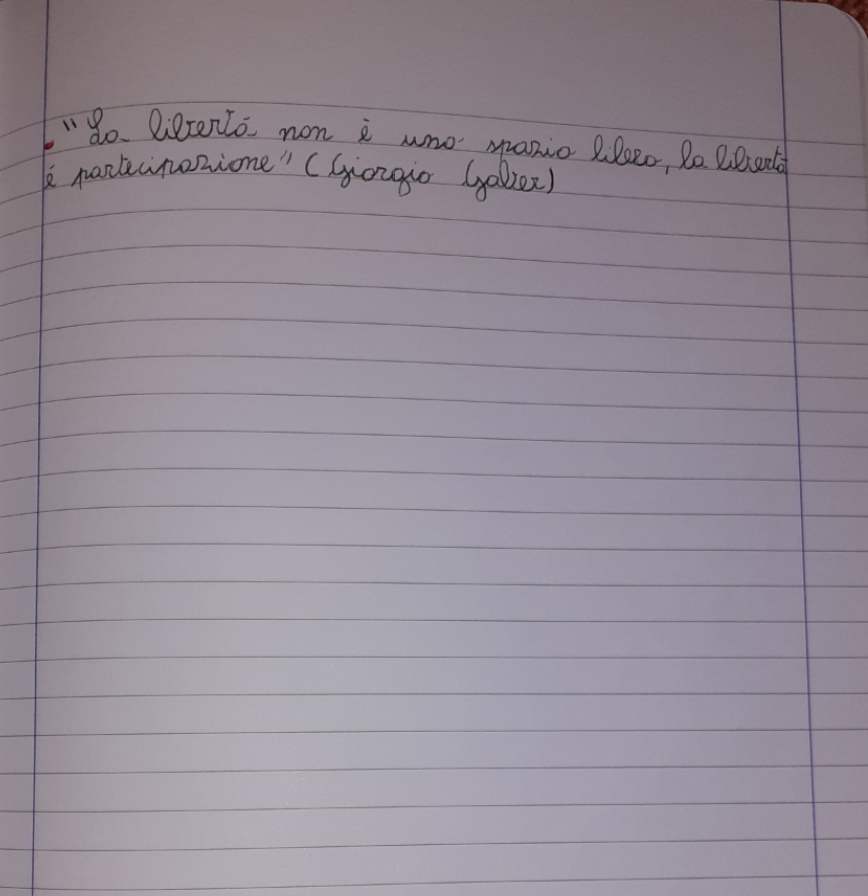 ."La libertá non è uno spazio libero, la libertà
é partecipazione" (Giorgio Gaber)